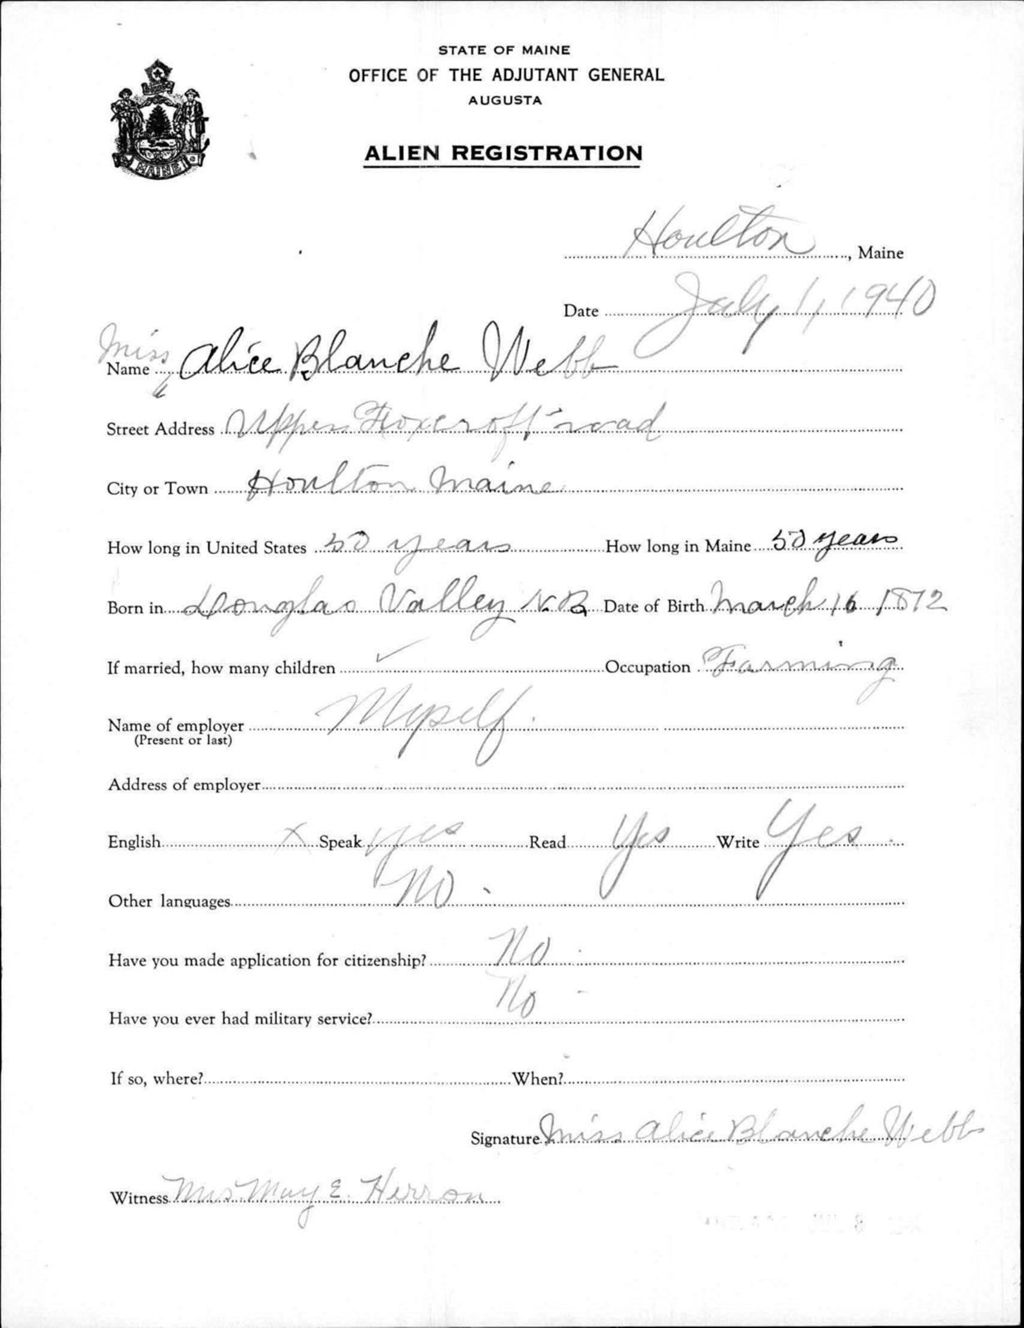 STATE OF MAINE
OFFICE OF THE ADJUTANT GENERAL
AUGUSTA
ALIEN REGISTRATION
MAINE
Houlton, Maine
Date July 1, 1940
Miss
Name Alice Blanche Webb
Street Address Upper Foxcroft road
City or Town Houlton Maine
How long in United States 50 years How long in Maine 50 years
Born in Douglas Valley N B Date of Birth March 16 1872
If married, how many children ✓ Occupation Farming
Name of employer Myself.
(Present or last)
Address of employer
English x Speak yes Read Yes Write Yes.
Other languages No.
Have you made application for citizenship? No.
Have you ever had military service? No -
If so, where? When?
Signature Miss Alice Blanche Webb
Witness Mrs May E. Herron